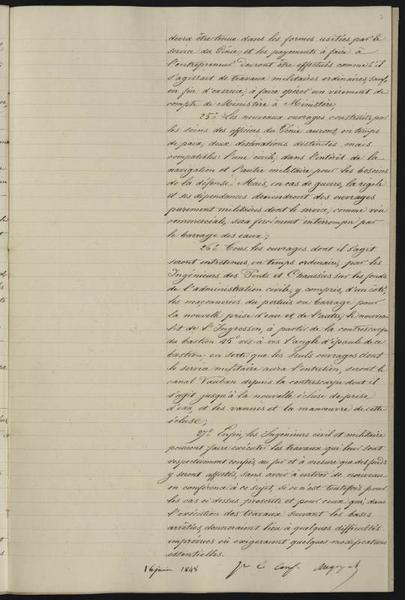 devra être tenue dans les formes usitées par le
service du Génie; et les payements à faire à
l'entrepreneur devront être effectués comme s'il
s'agissait de travaux militaires ordinaires sauf,
en fin d'exercice, à faire opérer un virement de
compte de Ministère à Ministère;
25° Les nouveaux ouvrages construits par
les soins des officiers du Génie auront, en temps
de paix, deux destinations distinctes, mais
compatibles: l'une civile, dans l'intérêt de la
navigation et l'autre militaire pour les besoins
de la défense. Mais, en cas de guerre, la rigole
et ses dépendances deviendront des ouvrages
purement militaires dont le service, comme voie
commerciale, sera forcément interrompu par
le barrage des eaux;
26° Tous les ouvrages dont il s'agit
seront entretenus, en temps ordinaire, par les
Ingénieurs des Ponts et Chaussées sur les fonds
de l'administration civile, y compris, d'un côté,
les maçonneries du pertuis ou barrage pour
la nouvelle prise d'eau et de l'autre, le nouveau
lit de l'Ingresson, à partir de la contrescarpe
du bastion 45 vis à vis l'angle d'épaule de ce
bastion; en sorte que les seuls ouvrages dont
le service militaire aura l'entretien, seront le
canal Vauban depuis la contrescarpe dont il
s'agit jusqu'à la nouvelle écluse de prise
d'eau, et les vannes et la manœuvre de cette
écluse;
27° Enfin, les Ingénieurs civil et militaire
pourront faire exécuter les travaux qui leur sont
respectivement confiés au fur et à mesure que des fonds
y seront affectés, sans avoir à entrer de nouveau
en conférence à ce sujet, si ce n'est toutefois pour
les cas ci dessus prescrits et pour ceux qui, dans
l'exécution des travaux suivant les bases
arrêtées, donneraient lieu à quelques difficultés
imprévues ou exigeraient quelques modifications
essentielles.
16 juin 1848